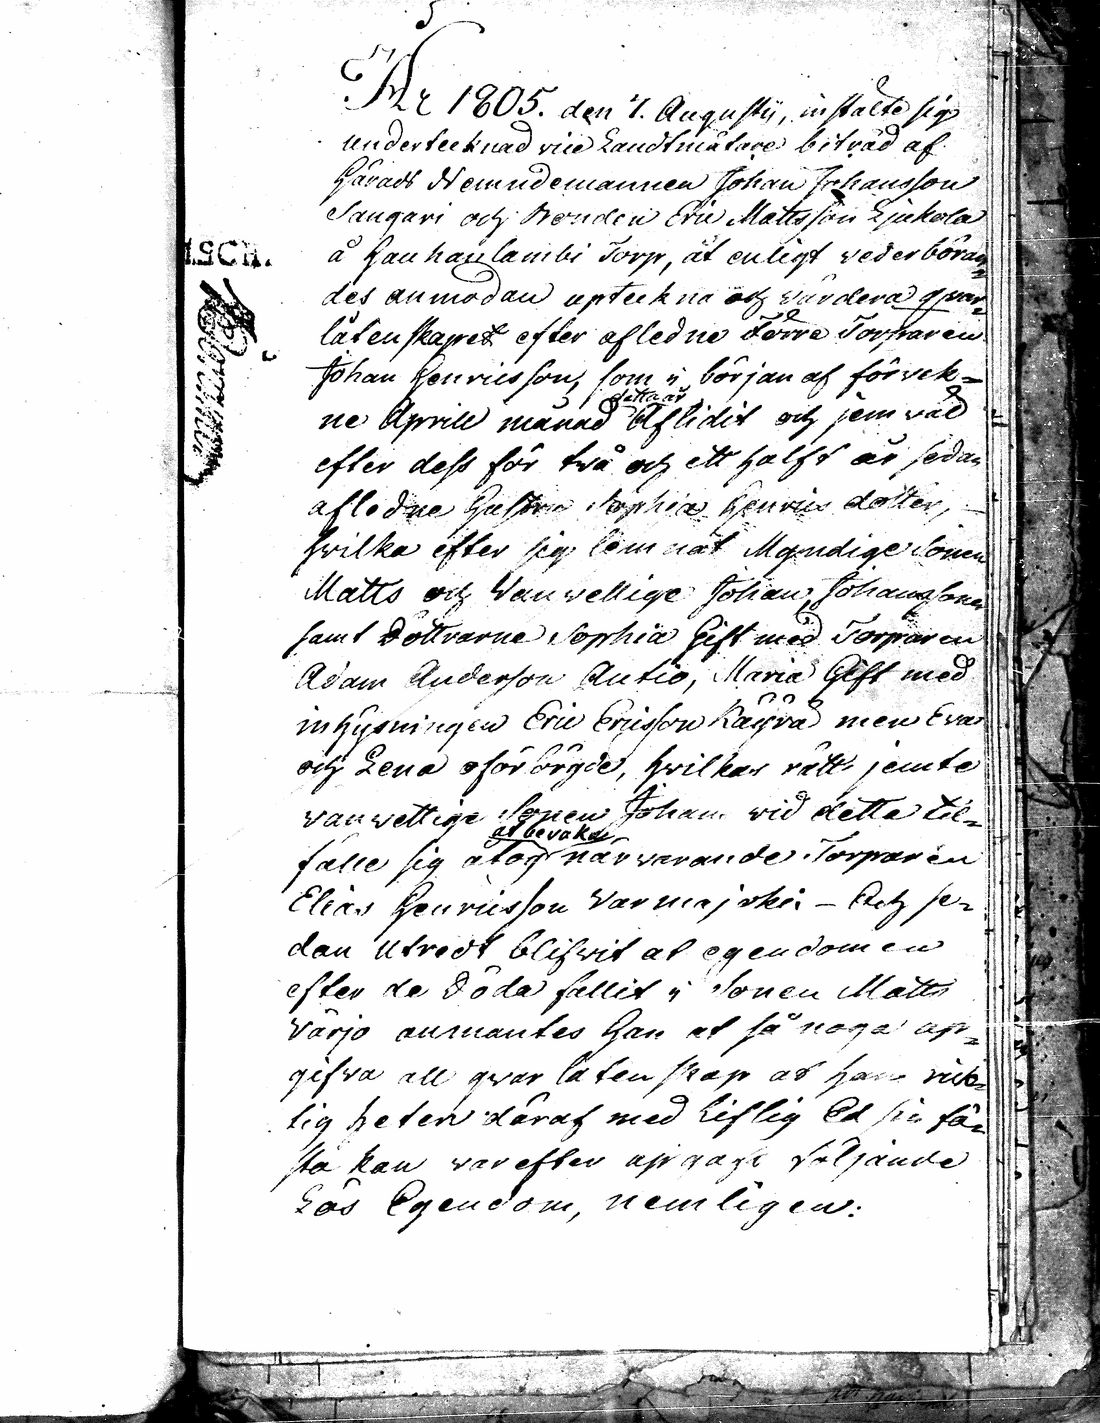 År 1805. den 7. Augusti, instälte sig
undertecknad vice Landtmätare biträd af
Härads Nemndemannen Johan Johansson
Sangari och Bonden Eric Mattsson Lijckola
å Hauhanlambi Torp, at enligt vederböran=
des anmodan upteckna och värdera qvar=
låtenskapet efter aflledne Förre Torparen
Johan Henricsson, som i början af förvek=
ne Aprill månad detta år Aflidit och jemväl
efter dess för två och ett halft år sedan
afledne Hustru Sophia Henrics dotter,
hvilka efter sig lemnat Myndige Sonen
Matts och Vanvettige Johan, Johans Söner
samt Döttrarne Sophia Gift med Torparen
Adam Anderson Autio, Maria Gift med
inhysningen Eric Ericsson Räyrä men Eva
och Lena oförsörgde, hvilkas rätt jemte
vanvettige Sonen Johan vid detta til=
fälle sig at bevaka åtog närvarande Torparen
Elias Henricsson Varmajoki – Och se=
dan utredt blifvit at egendomen
efter de Döda fallit i Sonen Matts
Värjo anmantes Han at så noga up=
gifva all qvarlåtenskap at han rick=
tigheten däraf med Liflig Ed sin fä=
sta kan varefter upgafs följande
Lös Egendom, nemligen: